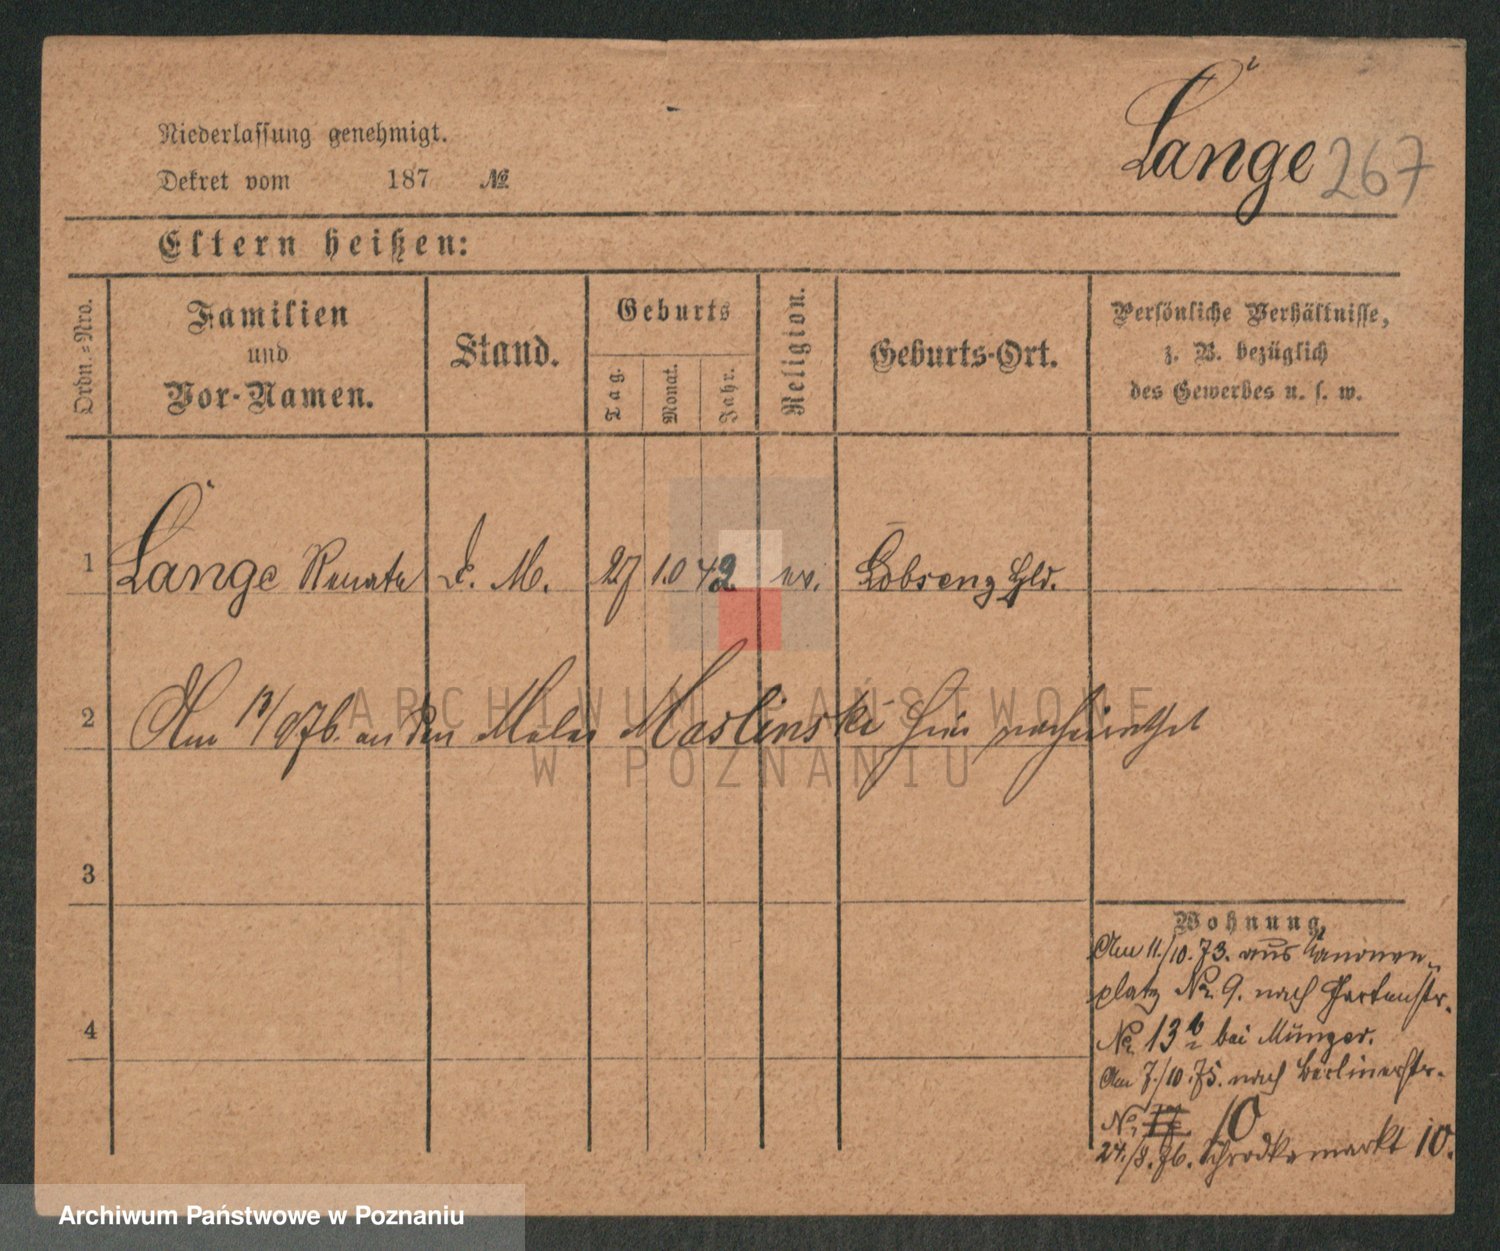 Lange 267
Niederlassung genehmigt.
Dekret vom 187 №
Eltern heißen:
Ordn.=Nro.
Familien
und
Vor-Namen.
Stand.
Geburts
Tag.
Monat.
Jahr.
Religion.
Geburts-Ort.
Persönliche Verhältnisse,
z. B. bezüglich
des Gewerbes u. s. w.
1 Lange Renate D. M. 27 10 42 ev. Lobsens Gld.
2 Am 76. an den Maler Maslinski hier verheirathet
3
4
Wohnung,
Am 11./10. 73. aus Canonen-
platz No. 9. nach Gartenstr.
No. 13 b bei Munger.
Am 7./10. 75. nach Berlinerstr.
No. 10
24./8. 76. Schrodkamarkt 10.
ARCHIWUM PAŃSTWOWE
W POZNANIU
Archiwum Państwowe w Poznaniu